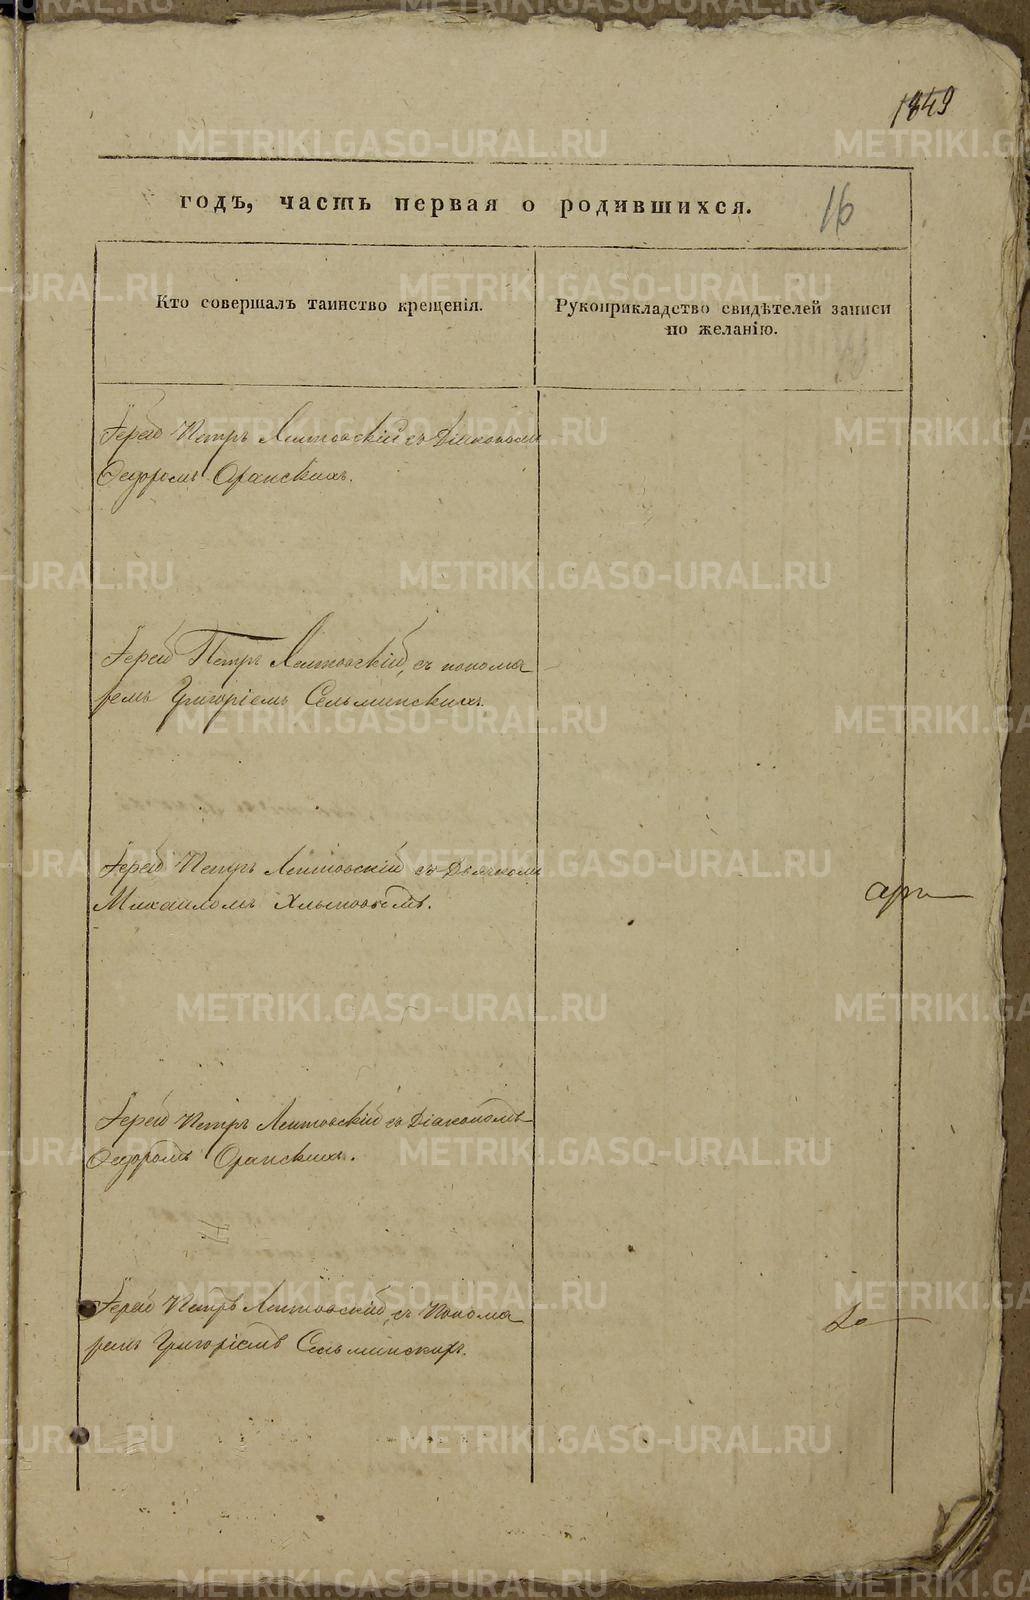 1849
годъ, часть первая о родившихся.
16
Кто совершалъ таинство крещенія.
Рукоприкладство свидѣтелей записи
по желанію.
Іерей Петръ Литовскій съ Діакономъ
Ѳедоромъ Оранскихъ.
Іерей Петръ Литовскій, съ понома
ремъ Григоріемъ Сельминскихъ
Іерей Петръ Литовскій съ Дьячкомъ
Михаиломъ Хлыновымъ.
Іерей Петръ Литовскій съ Діакономъ
Ѳедоромъ Оранскихъ.
Іерей Петръ Литовскій, съ Понома
ремъ Григоріемъ Сельминскихъ.
METRIKI.GASO-URAL.RU